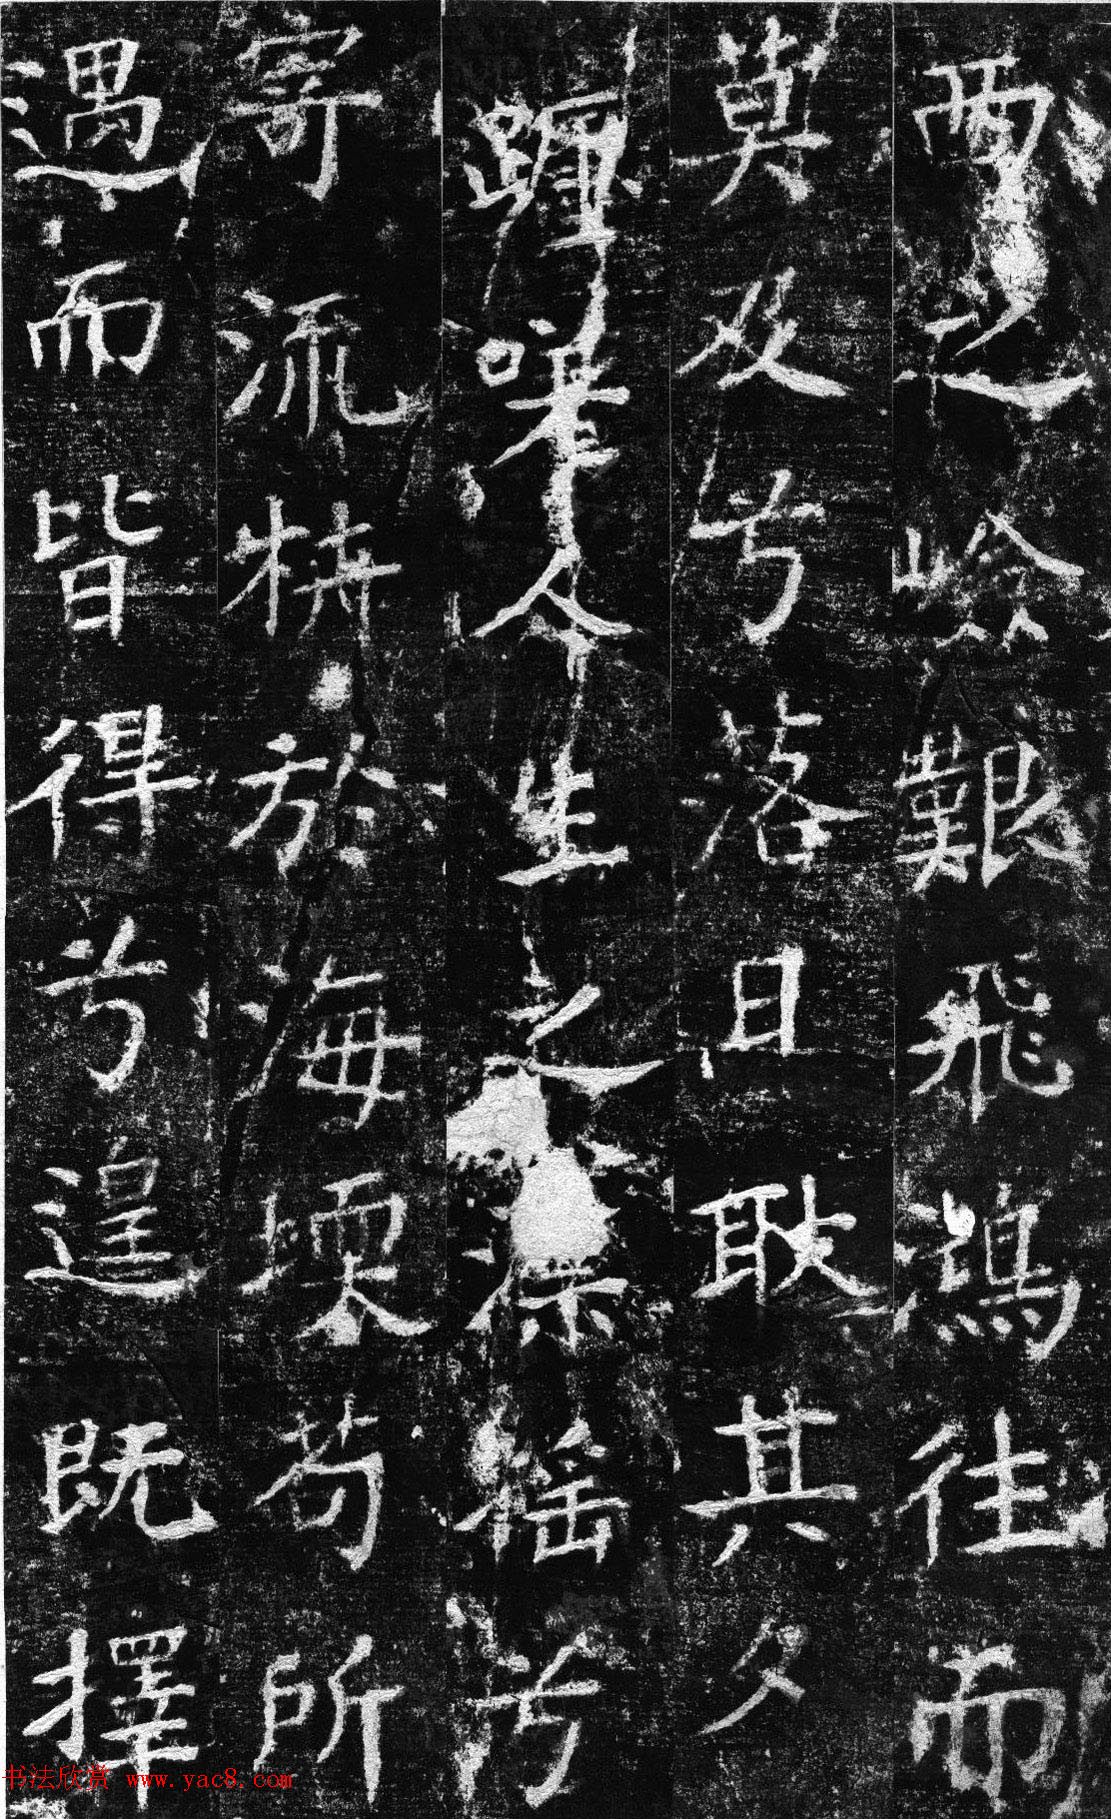 之嶮艱飛鴻往而
莫及兮落日耿其夕
躔嗟人生之漂搖兮
寄流枿於海壖苟所
遇而皆得兮遑既擇
书法欣赏 www.yac8.com